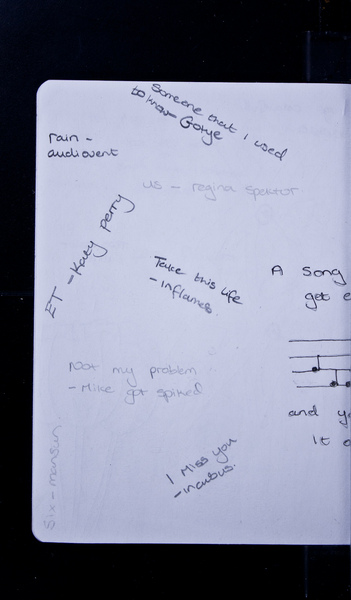 Someone that I used
to know - Gotye
rain -
audiovent
us - regina spektor
ET - Katy perry
Take this life
- inflames.
A song
get e
Not my problem
- Mike got spiked
and yo
It o
I Miss you
- incubus.
Six - mansun